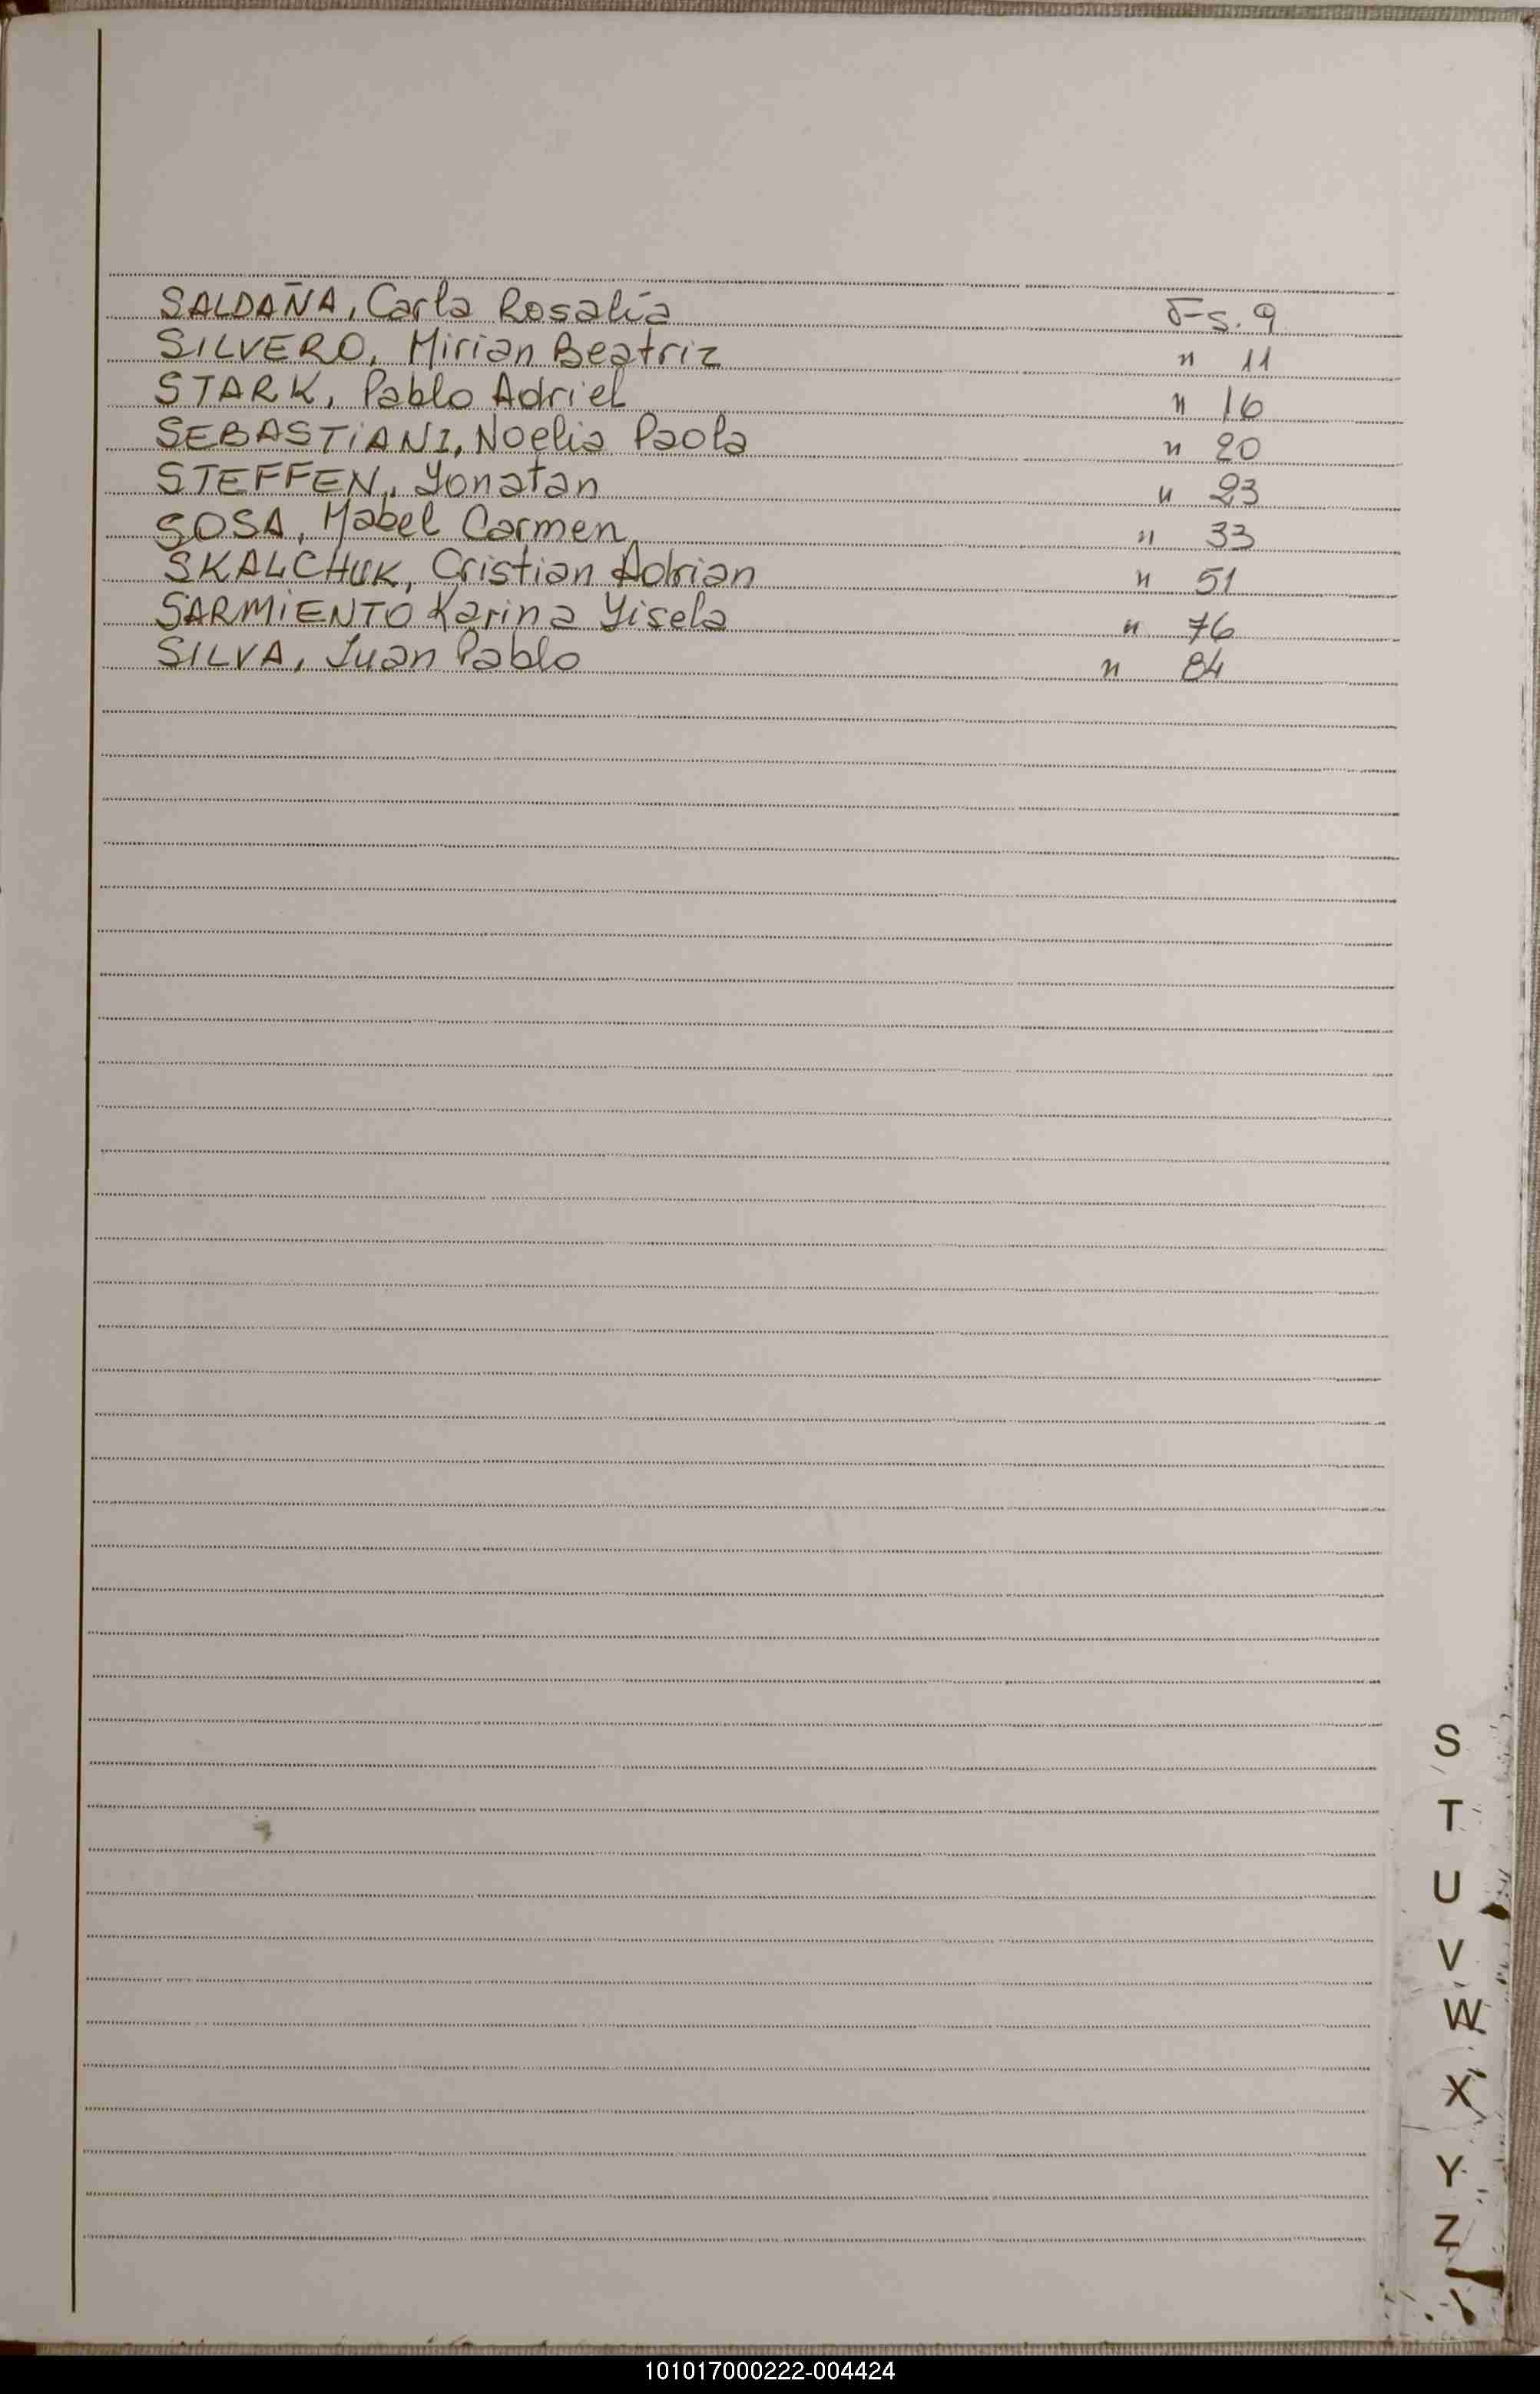 SALDAÑA, Carla Rosalía Fs. 9
SILVERO, Mirian Beatriz " 11
STARK, Pablo Adriel " 16
SEBASTIANI, Noelia Paola " 20
STEFFEN, Yonatan " 23
SOSA, Mabel Carmen " 33
SKALCHUK, Cristian Adrian " 51
SARMIENTO Karina Yisela " 76
SILVA, Juan Pablo " 84
S
T
U
V
W
X
Y
Z
101017000222-004424